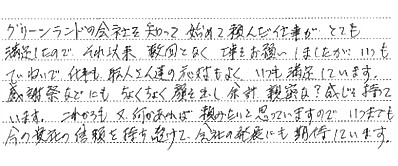 グリーンランドの会社を知って 始めて頼んだ仕事が とても
満足したので、それ以来 数回となく 工事をお願いしましたが、いつも
ていねいで、仕事も 職人さん達の 応対もよく いつも満足しています。
感謝祭などにも ちょくちょく 顔を出し 余計 親密な?感じを持って
います。これからも 又、何かあれば 頼みたいと思っていますので いつまでも
今の 貴社の 信頼を 持ち続けて、会社の発展にも 期待しています。